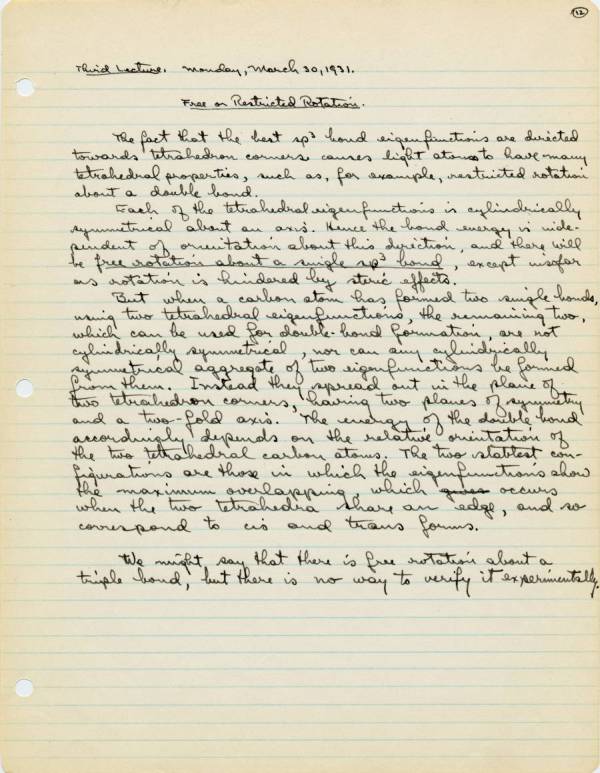 12
Third Lecture. Monday, March 30, 1931.
Free or Restricted Rotation.
The fact that the best sp³ bond eigenfunctions are directed
towards tetrahedron corners causes light atoms to have many
tetrahedral properties, such as, for example, restricted rotation
about a double bond.
Each of the tetrahedral eigenfunctions is cylindrically
symmetrical about an axis. Hence the bond energy is inde-
pendent of orientation about this direction, and there will
be free rotation about a single sp³ bond, except insofar
as rotation is hindered by steric effects.
But when a carbon atom has formed two single bonds,
using two tetrahedral eigenfunctions, the remaining two,
which can be used for double-bond formation, are not
cylindrically symmetrical, nor can any cylindrically
symmetrical aggregate of two eigenfunctions be formed
from them. Instead they spread out in the plane of
two tetrahedron corners, having two planes of symmetry
and a two-fold axis. The energy of the double bond
accordingly depends on the relative orientation of
the two tetrahedral carbon atoms. The two stablest con-
figurations are those in which the eigenfunctions show
the maximum overlapping, which gives occurs
when the two tetrahedra share an edge, and so
correspond to cis and trans forms.
We might say that there is free rotation about a
triple bond, but there is no way to verify it experimentally.